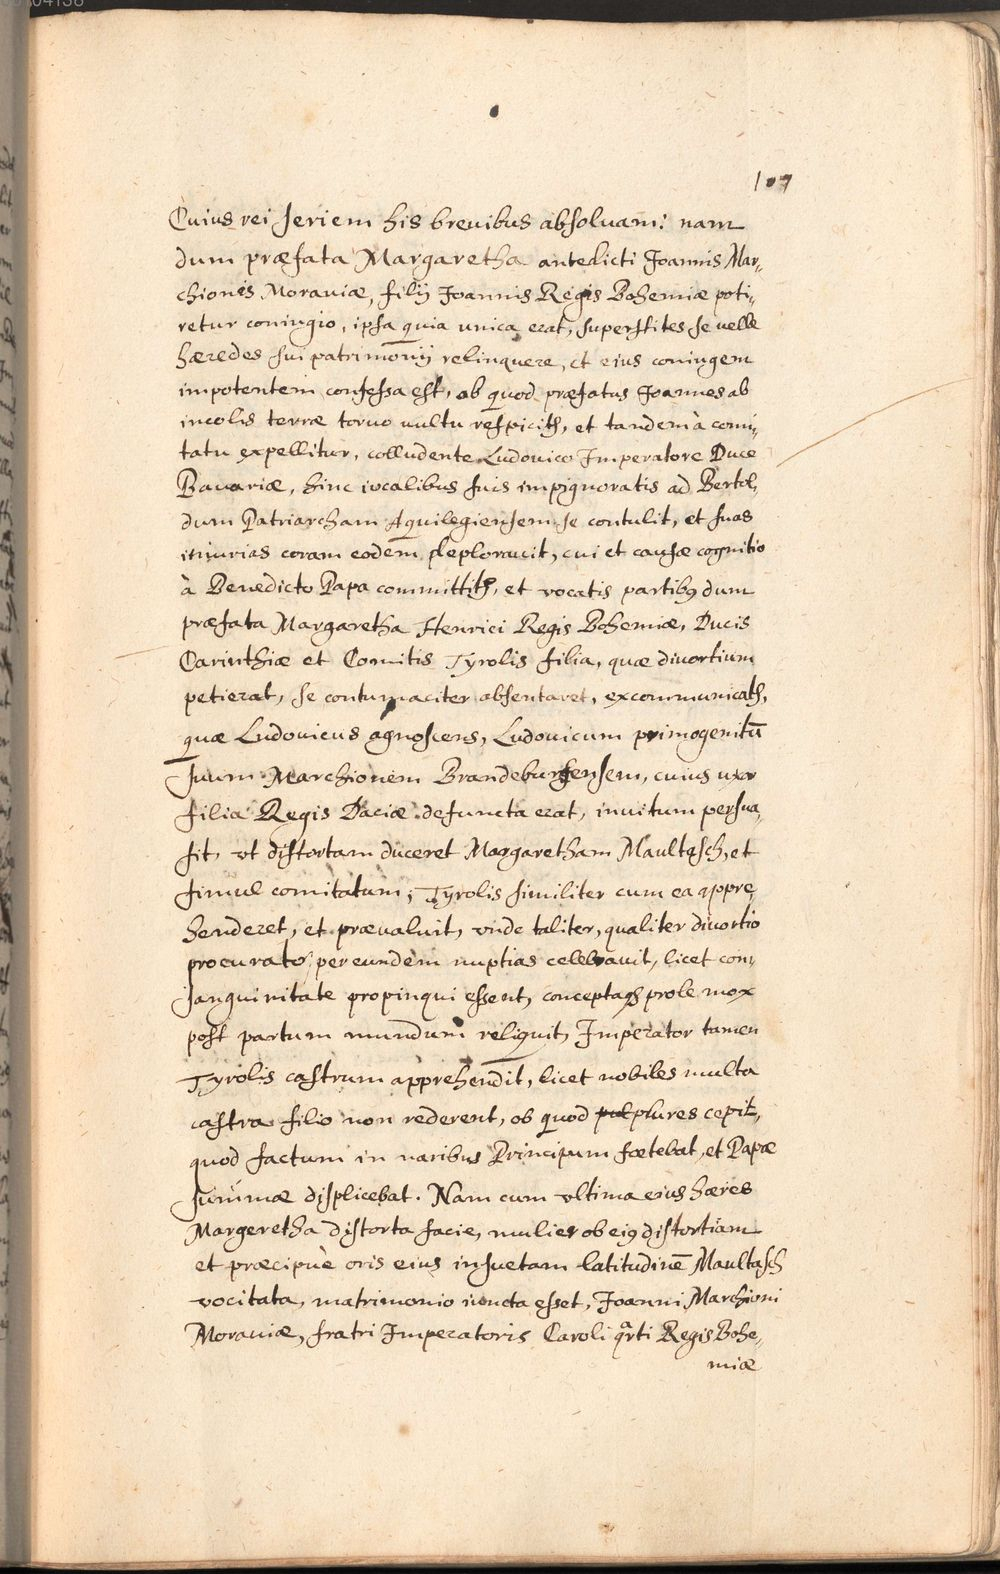 107
Cuius rei seriem his breuibus absoluam: nam
dum præfata Margaretha antedicti Joannis Mar-
chionis Morauiæ, filij Joannis Regis Bohemiæ poti-
retur coniugio, ipsa quia unica erat, superstites se uelle
hæredes sui patrimonij relinquere, et eius coniugem
impotentem confessa est, ob quod præfatus Joannes ab
incolis terræ toruo uultu respicitʳ, et tandem à comi-
tatu expellitur, colludente Ludouico Imperatore Duce
Bauariæ, hinc iocalibus suis impignoratis ad Bertol-
dum Patriarcham Aquilegiensem se contulit, et suas
iniurias coram eodem deplorauit, cui et causæ cognitio
à Benedicto Papa committitʳ, et vocatis partibꝰ dum
præfata Margaretha Henrici Regis Bohemiæ, Ducis
Carinthiæ et Comitis Tyrolis filia, quæ diuortium
petierat, se contumaciter absentaret, excommunicatʳ,
quæ Ludouicus agnoscens, Ludouicum primogenitū
suum Marchionem Brandeburgensem, cuius uxor
filia Regis Daciæ defuncta erat, inuitum persua-
sit, vt distortam duceret Margaretham Maultasch, et
simul comitatum, Tyrolis similiter cum ea appre-
henderet, et præualuit, vnde taliter, qualiter diuortio
procurato, per eundem nuptias celebrauit, licet con-
sanguinitate propinqui essent, conceptaqꝫ prole mox
post partum mundum reliquit, Imperator tamen
Tyrolis castrum apprehendit, licet nobiles multa
castra filio non rederent, ob quod pul plures cepit,
quod factum in naribus Principum fœtebat, et Papæ
summæ displicebat. Nam cum vltima eius hæres
Margeretha distorta facie, mulier ob eiꝰ distortiam
et præcipuè oris eius insuetam latitudinē Maultasch
vocitata, matrimonio iuncta esset, Joanni Marchioni
Morauiæ, fratri Imperatoris Caroli qrti Regis Bohe-
miæ